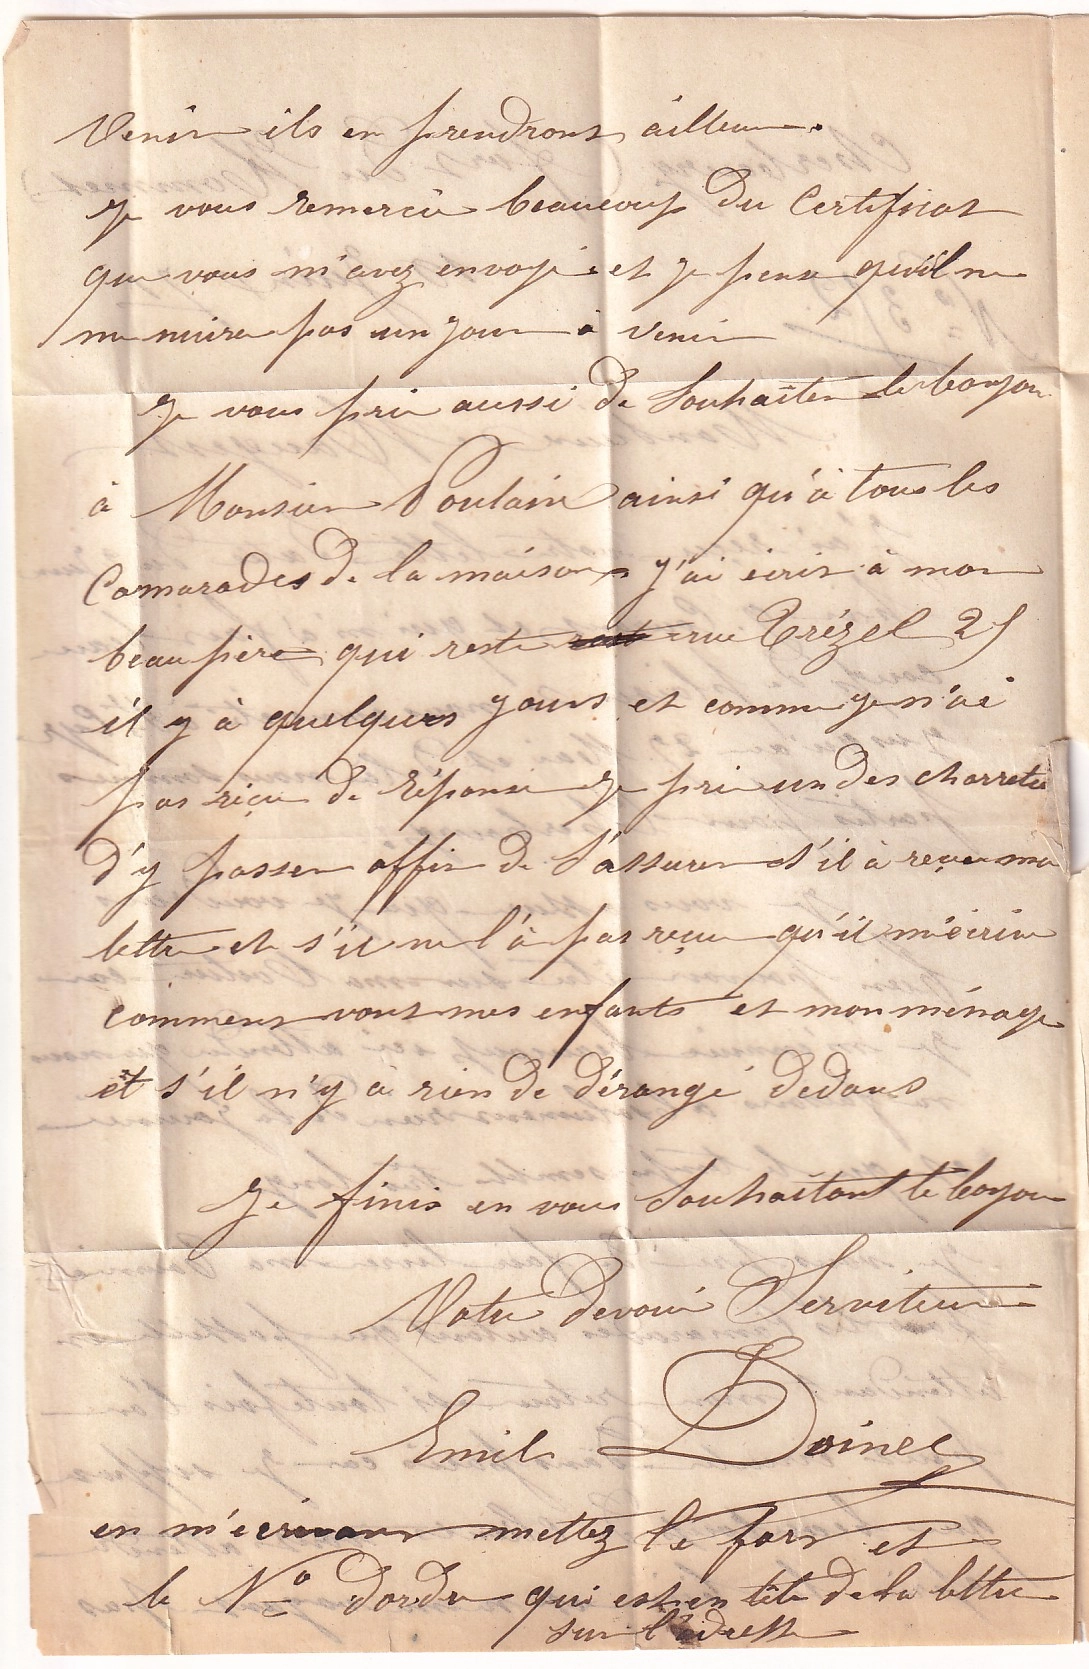 venir ils en prendront ailleur.
Je vous remercie beaucoup du Certificat
que vous m'avez envoyé et je pense qu'il ne
me nuira pas un jour à venir
Je vous prie aussi de Souhaiter le bonjour
à Monsieur Poulain ainsi qu'à tous les
Camarades de la maison j'ai écrit à mon
beau père qui reste rue Trézel 25
il y à quelques jours et comme je n'ai
pas reçu de réponse je prie un des charretier
d'y passer affin de s'assurer s'il à reçu ma
lettre et s'il ne l'à pas reçu qu'il m'écrive
comment vont mes enfants et mon ménage
et s'il n'y à rien de dérangé dedans
Je finis en vous Souhaitant le bonjour
Votre dévoué Serviteur
Emile Doinel
en m'écrivant mettez le fort et
le No dordre qui est en tête de la lettre
sur l'adresse